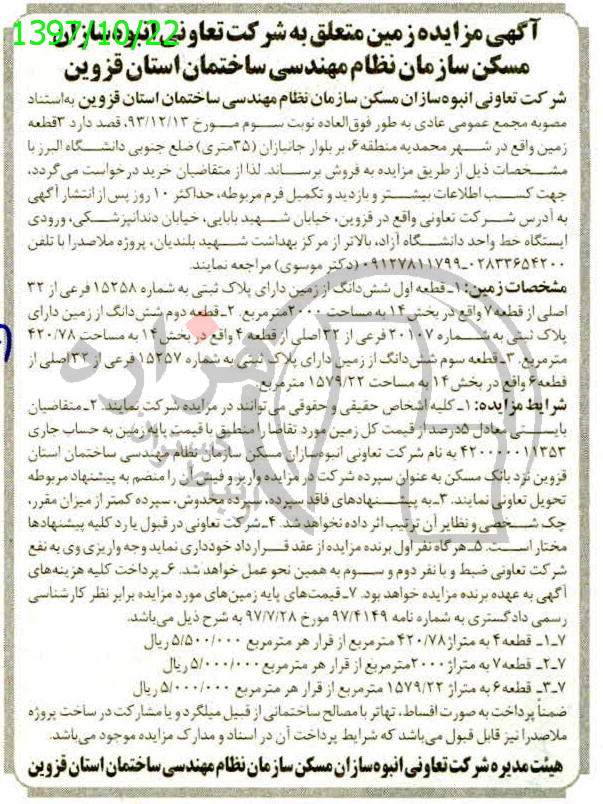 1397/10/22
آگهی مزایده زمین متعلق به شرکت تعاونی انبوه‌سازان
مسکن سازمان نظام مهندسی ساختمان استان قزوین
شرکت تعاونی انبوه‌سازان مسکن سازمان نظام مهندسی ساختمان استان قزوین به‌استناد
مصوبه مجمع عمومی عادی به طور فوق‌العاده نوبت سوم مورخ ۹۳/۱۲/۱۳، قصد دارد ۳قطعه
زمین واقع در شهر محمدیه منطقه۶، بر بلوار جانبازان (۳۵متری) ضلع جنوبی دانشگاه البرز با
مشخصات ذیل از طریق مزایده به فروش برساند. لذا از متقاضیان خرید درخواست می‌گردد،
جهت کسب اطلاعات بیشتر و بازدید و تکمیل فرم مربوطه، حداکثر ۱۰ روز پس از انتشار آگهی
به آدرس شرکت تعاونی واقع در قزوین، خیابان شهید بابایی، خیابان دندانپزشکی، ورودی
ایستگاه خط واحد دانشگاه آزاد، بالاتر از مرکز بهداشت شهید بلندیان، پروژه ملاصدرا با تلفن
۰۲۸۳۳۶۵۴۲۰۰_۰۹۱۲۷۸۱۱۷۹۹ (دکتر موسوی) مراجعه نمایند.
مشخصات زمین: ۱_ قطعه اول شش‌دانگ از زمین دارای پلاک ثبتی به شماره ۱۵۲۵۸ فرعی از ۳۲
اصلی از قطعه ۷ واقع در بخش ۱۴ به مساحت ۲۰۰۰مترمربع. ۲_ قطعه دوم شش‌دانگ از زمین دارای
پلاک ثبتی به شماره ۲۰۱۰۷ فرعی از ۳۲ اصلی از قطعه ۴ واقع در بخش ۱۴ به مساحت ۴۲۰/۷۸
مترمربع. ۳_ قطعه سوم شش‌دانگ از زمین دارای پلاک ثبتی به شماره ۱۵۲۵۷ فرعی از ۳۲ اصلی از
قطعه۶ واقع در بخش ۱۴ به مساحت ۱۵۷۹/۲۲ مترمربع.
شرایط مزایده: ۱_ کلیه اشخاص حقیقی و حقوقی می‌توانند در مزایده شرکت نمایند. ۲_ متقاضیان
بایستی معادل ۵درصد از قیمت کل زمین مورد تقاضا را منطبق با قیمت پایه زمین به حساب جاری
۴۲۰۰۰۰۰۱۱۳۵۳ به نام شرکت تعاونی انبوه‌سازان مسکن سازمان نظام مهندسی ساختمان استان
قزوین نزد بانک مسکن به عنوان سپرده شرکت در مزایده واریز و فیش آن را منضم به پیشنهاد مربوطه
تحویل تعاونی نمایند. ۳_ به پیشنهادهای فاقد سپرده، مخدوش، سپرده کمتر از میزان مقرر،
چک شخصی و نظایر آن ترتیب اثر داده نخواهد شد. ۴_ شرکت تعاونی در قبول یا رد کلیه پیشنهادها
مختار است. ۵_ هرگاه نفر اول برنده مزایده از عقد قرارداد خودداری نماید وجه واریزی وی به نفع
شرکت تعاونی ضبط و با نفر دوم و سوم به همین نحو عمل خواهد شد. ۶_ پرداخت کلیه هزینه‌های
آگهی به عهده برنده مزایده خواهد بود. ۷_ قیمت‌های پایه زمین‌های مورد مزایده برابر نظر کارشناسی
رسمی دادگستری به شماره نامه ۹۷/۴۱۴۹ مورخ ۹۷/۷/۲۸ به شرح ذیل می‌باشد.
۷_۱_ قطعه۴ به متراژ ۴۲۰/۷۸ مترمربع از قرار هر مترمربع ۵/۵۰۰/۰۰۰ ریال
۷_۲_ قطعه۷ به متراژ ۲۰۰۰مترمربع از قرار هر مترمربع ۵/۰۰۰/۰۰۰ ریال
۷_۳_ قطعه۶ به متراژ ۱۵۷۹/۲۲ مترمربع از قرار هر مترمربع ۵/۰۰۰/۰۰۰ ریال
ضمناً پرداخت به صورت اقساط، تهاتر با مصالح ساختمانی از قبیل میلگرد و یا مشارکت در ساخت پروژه
ملاصدرا نیز قابل قبول می‌باشد که شرایط پرداخت آن در اسناد و مدارک مزایده موجود می‌باشد.
هیئت مدیره شرکت تعاونی انبوه‌سازان مسکن سازمان نظام مهندسی ساختمان استان قزوین
هزاره